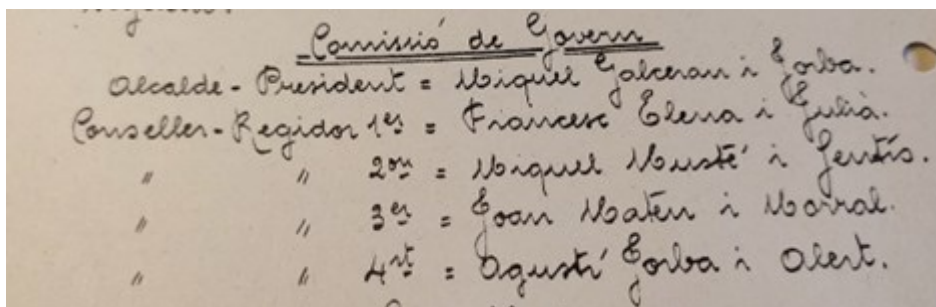 Comissió de Govern
Alcalde - President = Miquel Galceran i Jorba.
Conseller - Regidor 1er = Francesc Elena i Julià.
" " 2on = Miquel Musté i Gentís.
" " 3er = Joan Mateu i Marral.
" " 4rt = Agustí Jorba i Alert.